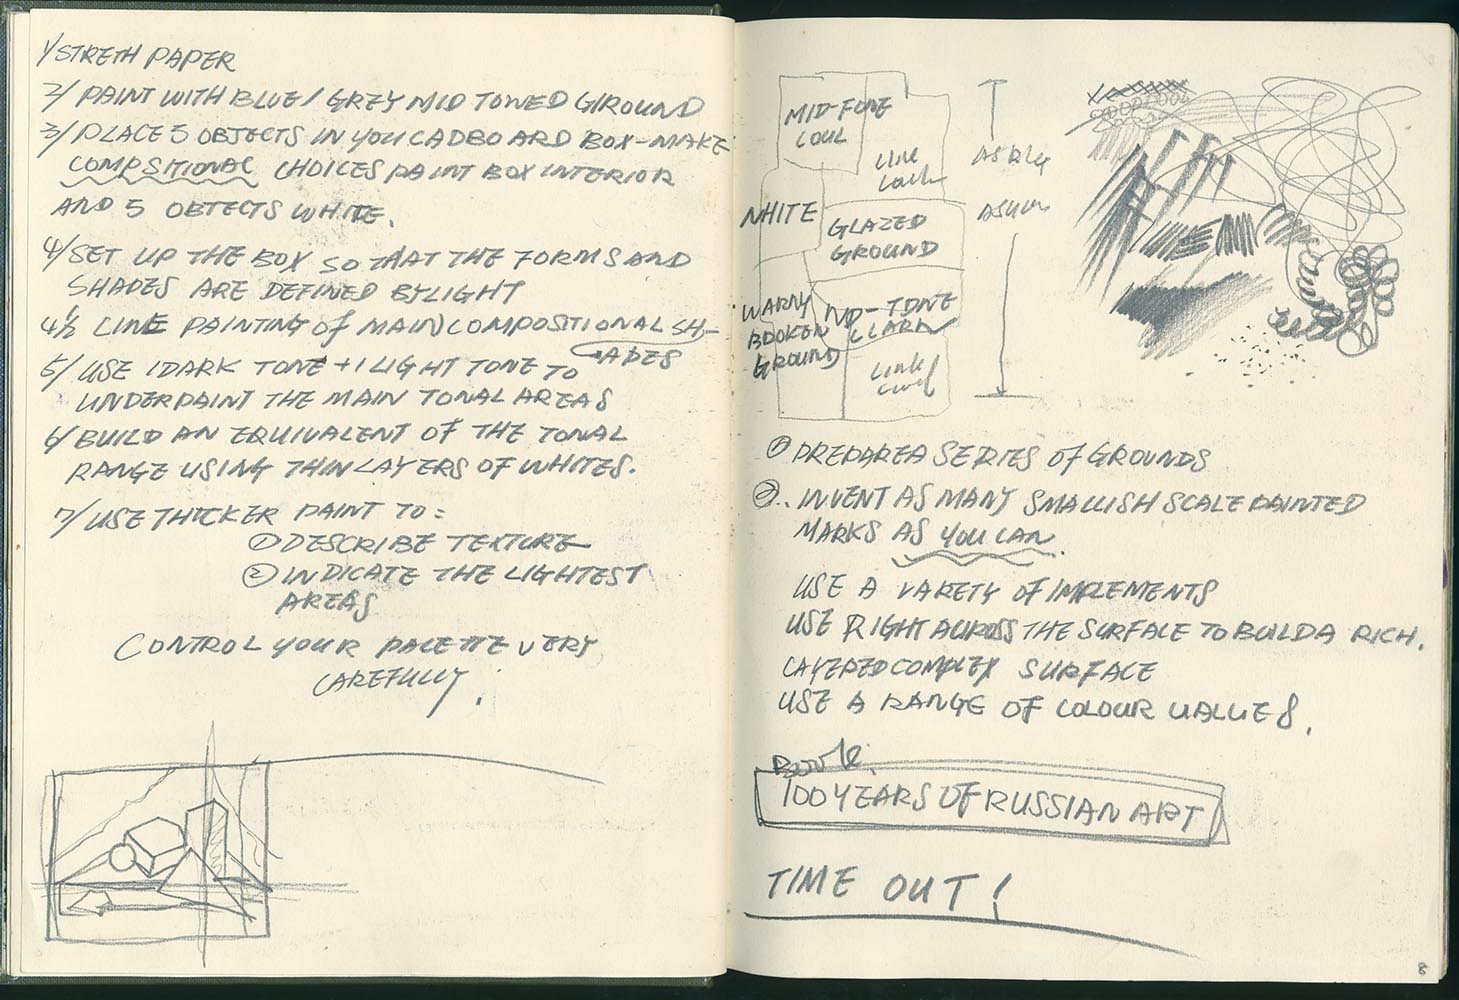 1/ STRETH PAPER
2/ PAINT WITH BLUE / GREY MID TONED GROUND
3/ PLACE 5 OBJECTS IN YOU CADBOARD BOX - MAKE
COMPSITIONAL CHOICES PAINT BOX INTERIOR
AND 5 OBJECTS WHITE.
4/ SET UP THE BOX SO THAT THE FORMS AND
SHADES ARE DEFINED BY LIGHT
4½ LINE PAINTING of MAIN COMPOSITIONAL SH-
APES
5/ USE 1 DARK TONE + 1 LIGHT TONE TO
UNDERPAINT THE MAIN TONAL AREAS
6/ BUILD AN EQUIVALENT OF THE TONAL
RANGE USING THIN LAYERS OF WHITES.
7/ USE THICKER PAINT TO:
① DESCRIBE TEXTURE
② INDICATE THE LIGHTEST
AREAS
CONTROL YOUR PALETTE VERY
CAREFULLY.
MID-TONE
COUL
WHITE
GLAZED
GROUND
GROUND
① PREPARE A SERIES OF GROUNDS
②.. INVENT AS MANY SMALLISH SCALE PAINTED
MARKS AS YOU CAN.
USE A VARIETY OF IMPLEMENTS
USE RIGHT ACROSS THE SURFACE TO BUILD A RICH.
LAYERED COMPLEX SURFACE
USE A RANGE OF COLOUR VALUES.
Book:
100 YEARS OF RUSSIAN ART
TIME OUT!
8